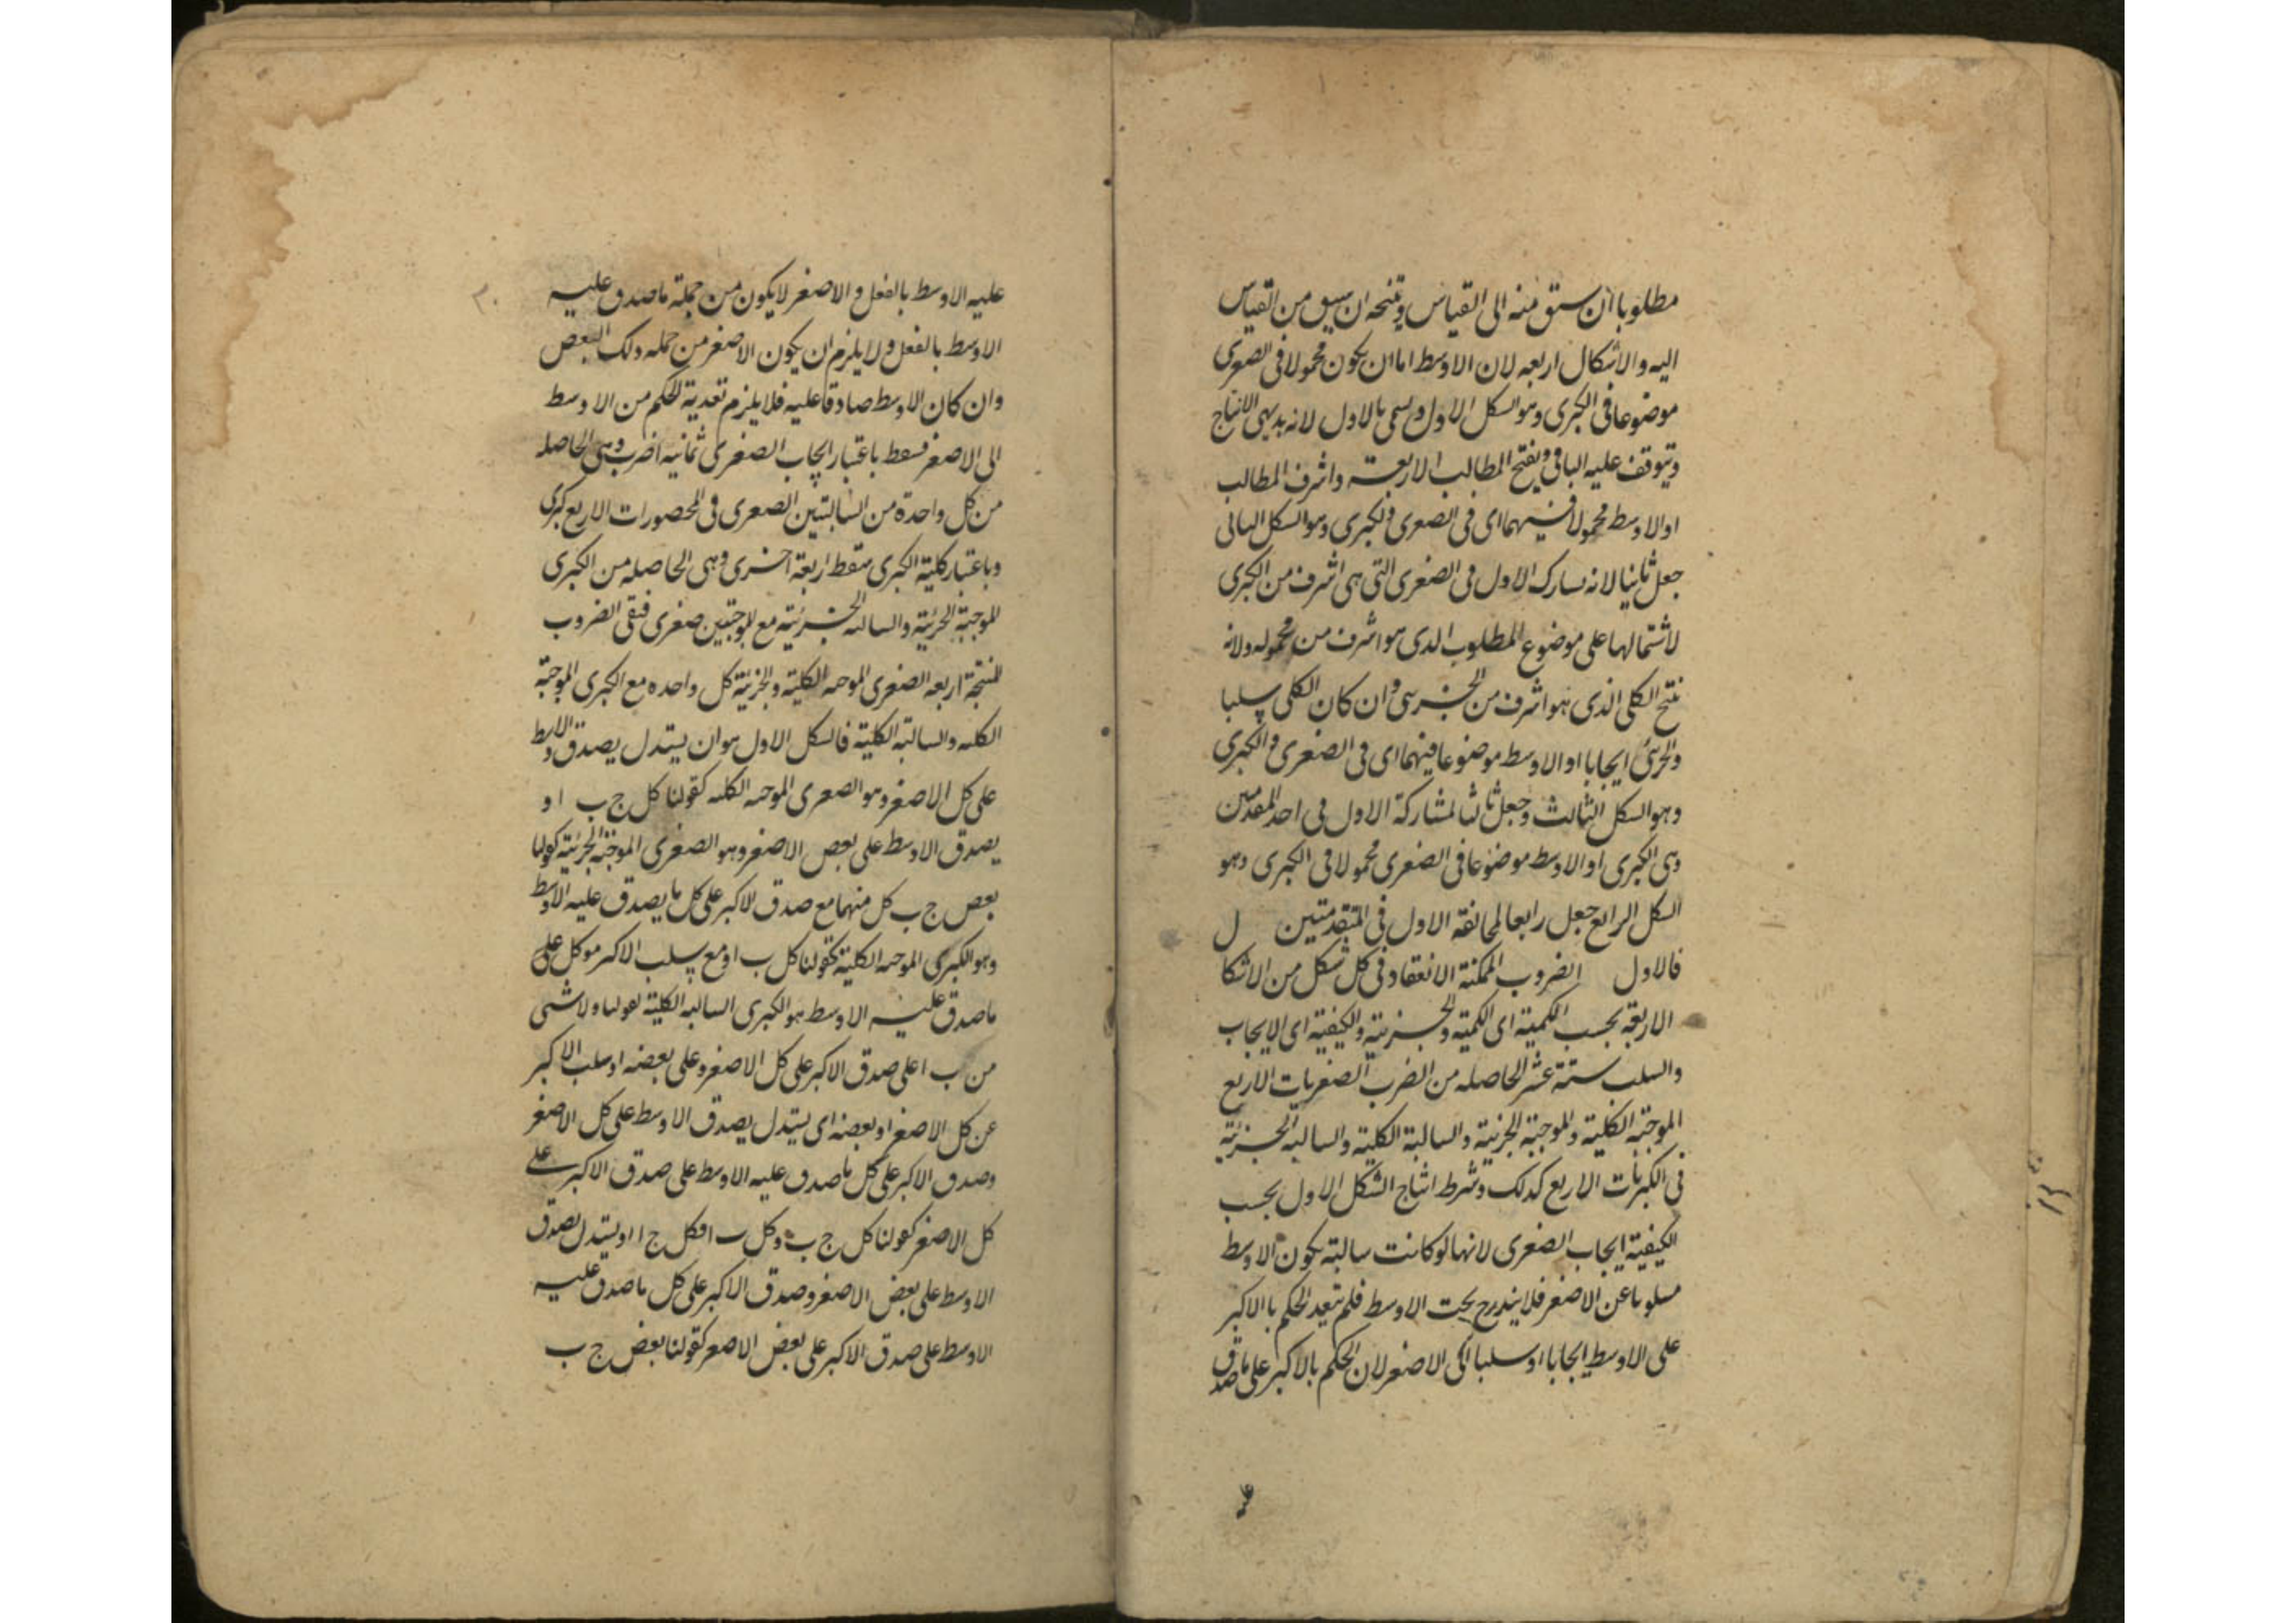 مطلوبا ان سبق منه الى القياس ونتيجة ان سبق من القياس
اليه والاشكال اربعه لان الاوسط اما ان يكون محمولا فى الصغرى
موضوعا فى الكبرى وهو الشكل الاول ويسمى بالاول لانه بديهى الانتاج
ويتوقف عليه الباقى وينتج المطالب الاربعة واشرف المطالب
او الاوسط محمولا فيهما اى فى الصغرى والكبرى وهو الشكل الثانى
جعل ثانيا لانه يشارك الاول فى الصغرى التى هى اشرف من الكبرى
لاشتمالها على موضوع المطلوب الذى هو اشرف من محموله ولانه
ينتج الكلى الذى هو اشرف من الجزئى وان كان الكلى سلبا
والجزئى ايجابا او الاوسط موضوعا فيهما اى فى الصغرى والكبرى
وهو الشكل الثالث وجعل ثالثا لمشاركة الاول فى احد المقدمتين
وهى الكبرى او الاوسط موضوعا فى الصغرى محمولا فى الكبرى وهو
الشكل الرابع جعل رابعا لمخالفة الاول فى المتقدمتين
فالاول الضروب الممكنة الانعقاد فى كل شكل من الاشكال
الاربعة بحسب الكمية اى الكمية والجزئية والكيفية اى الايجاب
والسلب ستة عشر الحاصله من الضرب الصغريات الاربع
الموجبة الكلية والموجبة الجزئية والسالبة الكلية والسالبة الجزئية
فى الكبريات الاربع كذلك وشرط انتاج الشكل الاول بحسب
الكيفية ايجاب الصغرى لانها لو كانت سالبة يكون الاوسط
مسلوبا عن الاصغر فلا يندرج تحت الاوسط فلم يتعد الحكم بالاكبر
على الاوسط ايجابا او سلبا الى الاصغر لان الحكم بالاكبر على ما صدق
عليه
عليه الاوسط بالفعل والاصغر لا يكون من جملة ما صدق عليه
الاوسط بالفعل ولا يلزم ان يكون الاصغر من جمله ذلك البعض
وان كان الاوسط صادقا عليه فلا يلزم تعدية الحكم من الاوسط
الى الاصغر فسقط باعتبار ايجاب الصغرى ثمانيه اضرب وهى الحاصله
من كل واحدة من السالبتين الصغرى فى المحصورات الاربع كبرى
وباعتبار كلية الكبرى سقط اربعة اخرى وهى الحاصله من الكبرى
الموجبة الجزئية والسالبه الجزئية مع الموجبتين صغرى فبقى الضروب
المنتجة اربعه الصغرى الموجبه الكلية والجزئية كل واحده مع الكبرى الموجبة
الكليه والسالبة الكلية فالشكل الاول هو ان يستدل بصدق الاوسط
على كل الاصغر وهو الصغرى الموجبه الكليه كقولنا كل ج ب او
يصدق الاوسط على بعض الاصغر وهو الصغرى الموجبة الجزئية كقولنا
بعض ج ب كل منهما مع صدق الاكبر على كل ما يصدق عليه الاوسط
وهو الكبرى الموجبه الكلية كقولنا كل ب ا و مع سلب الاكبر مو كل على
ما صدق عليه الاوسط هو الكبرى السالبه الكلية كقولنا ولا شئ
من ب ا على صدق الاكبر على كل الاصغر وعلى بعضه او سلب الاكبر
عن كل الاصغر او بعضه اى يستدل بصدق الاوسط على كل الاصغر
وصدق الاكبر على كل ما صدق عليه الاوسط على صدق الاكبر على
كل الاصغر كقولنا كل ج ب وكل ب ا فكل ج ا او يستدل بصدق
الاوسط على بعض الاصغر وصدق الاكبر على كل ما صدق عليه
الاوسط على صدق الاكبر على بعض الاصغر كقولنا بعض ج ب